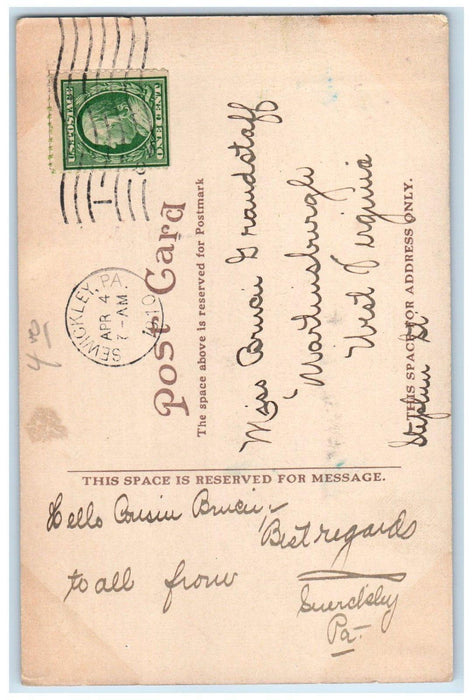 U.S. POSTAGE
ONE CENT
SEWICKLEY, PA.
APR 4
7-AM
1910
1
Post Card
The space above is reserved for Postmark
Miss Brucie Grandstaff
Martinsburgh
West Virginia
THIS SPACE FOR ADDRESS ONLY.
Stephen St
THIS SPACE IS RESERVED FOR MESSAGE.
Hello Cousin Brucie,-
Best regards
to all from
Pa-